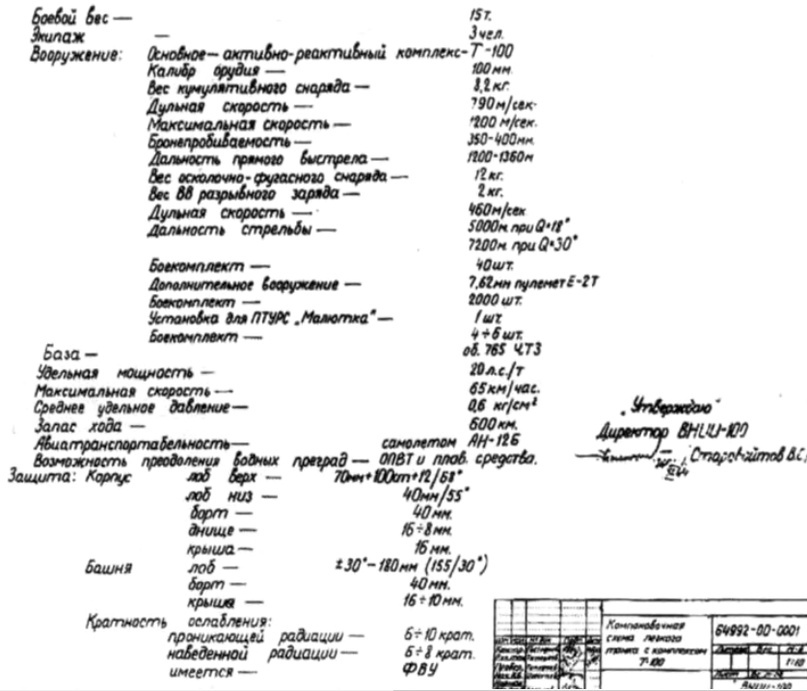 Боевой вес — 15т.
Экипаж — 3 чел.
Вооружение: Основное — активно-реактивный комплекс-Т-100
Калибр орудия — 100 мм.
Вес кумулятивного снаряда — 8,2 кг.
Дульная скорость — 790 м/сек.
Максимальная скорость — 1200 м/сек.
Бронепробиваемость — 350-400 мм.
Дальность прямого выстрела — 1200-1360м
Вес осколочно-фугасного снаряда — 12 кг.
Вес ВВ разрывного заряда — 2 кг.
Дульная скорость — 460м/сек
Дальность стрельбы — 5000м при Q=18°
7200м при Q=30°
Боекомплект — 40шт.
Дополнительное вооружение — 7,62мм пулемет Е-2Т
Боекомплект — 2000 шт.
Установка для ПТУРС „Малютка“ — 1 шт
Боекомплект — 4÷6 шт.
База — об. 765 ЧТЗ
Удельная мощность — 20 л.с./т
Максимальная скорость — 65 км/час.
Среднее удельное давление — 0,6 кг/см²
Запас хода — 600 км.
Авиатранспортабельность — самолетом АН-12Б
Возможность преодоления водных преград — ОПВТ и плав. средства.
Защита: Корпус лоб верх — 70мм+100ст+12/68°
лоб низ — 40мм/55°
борт — 40 мм.
днище — 16÷8 мм.
крыша — 16 мм.
Башня лоб — ±30°-180мм (155/30°)
борт — 40 мм.
крыша — 16÷10 мм.
Кратность ослабления:
проникающей радиации — 6÷10 крат.
наведенной радиации — 6÷8 крат.
имеется — ФВУ
„Утверждаю“
Директор ВНИИ-100
Старовойтов В.С.
Компоновочная схема легкого танка с комплексом Т-100
64992-00-0001
1:10
ВНИИ-100